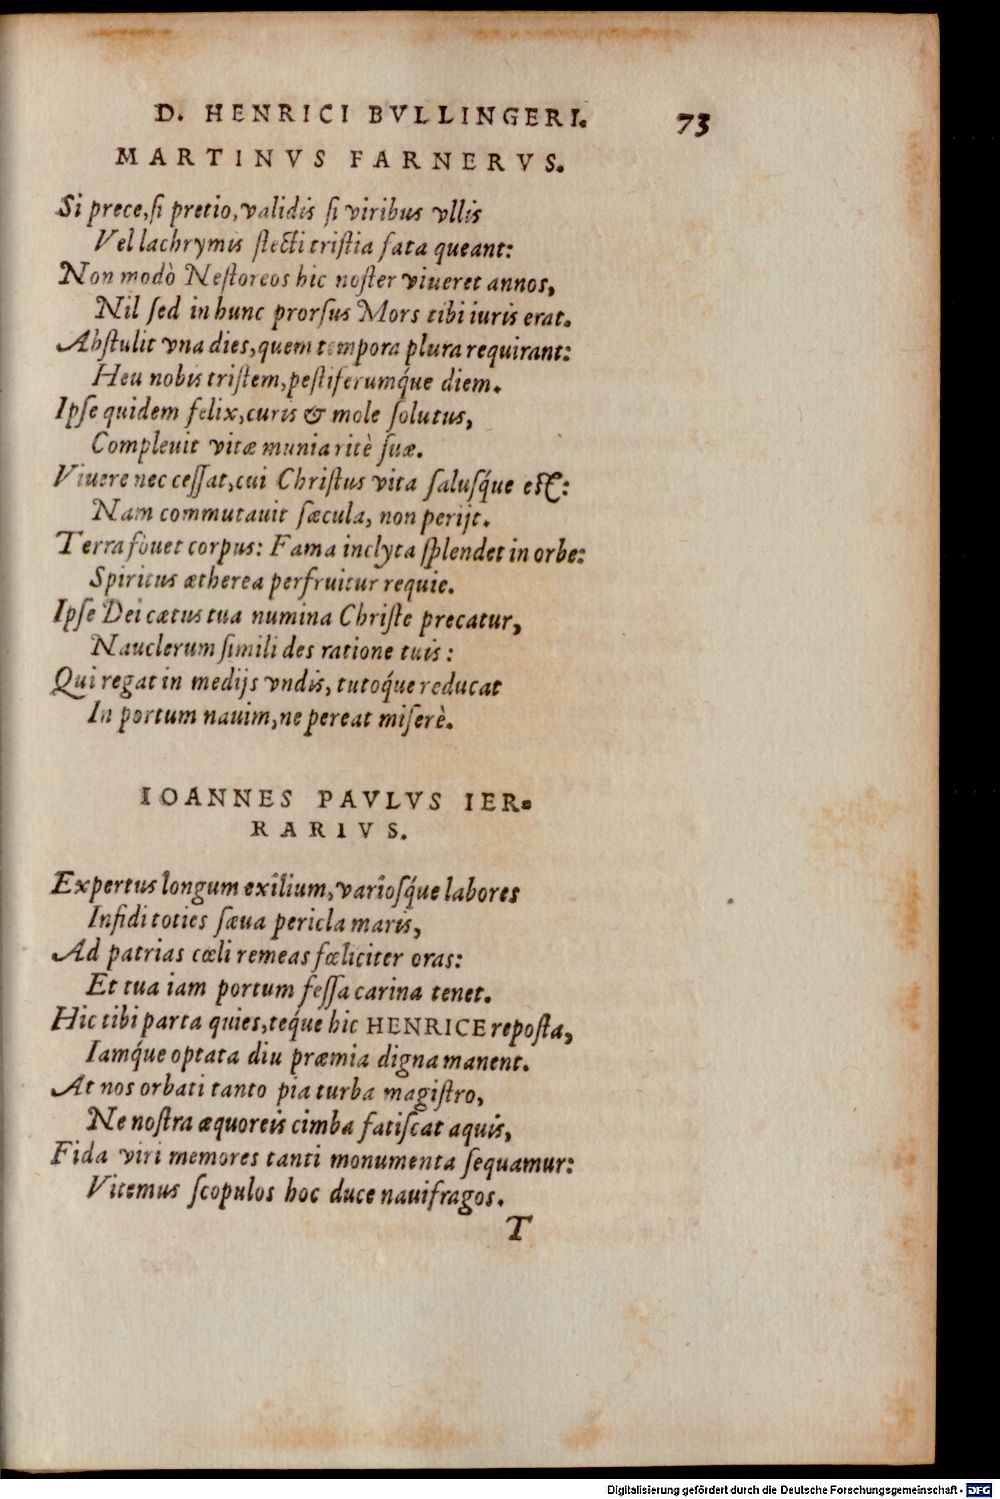 D. HENRICI BVLLINGERI. 73
MARTINVS FARNERVS.
Si prece, ſi pretio, validis ſi viribus vllis
Vel lachrymis flecti triſtia fata queant:
Non modò Neſtoreos hic noſter viueret annos,
Nil ſed in hunc prorſus Mors tibi iuris erat.
Abſtulit vna dies, quem tempora plura requirant:
Heu nobis triſtem, peſtiferumq́ue diem.
Ipſe quidem felix, curis & mole ſolutus,
Compleuit vitæ munia ritè ſuæ.
Viuere nec ceſſat, cui Chriſtus vita ſaluſq́ue eſt:
Nam commutauit ſæcula, non perijt.
Terra fouet corpus: Fama inclyta ſplendet in orbe:
Spiritus ætherea perfruitur requie.
Ipſe Dei cætus tua numina Chriſte precatur,
Nauclerum ſimili des ratione tuis:
Qui regat in medijs vndis, tutoq́ue reducat
In portum nauim, ne pereat miſerè.
IOANNES PAVLVS IER-
RARIVS.
Expertus longum exilium, varioſq́ue labores
Infidi toties ſæua pericla maris,
Ad patrias cæli remeas fæliciter oras:
Et tua iam portum feſſa carina tenet.
Hic tibi parta quies, teq́ue hic HENRICE repoſta,
Iamq́ue optata diu præmia digna manent.
At nos orbati tanto pia turba magiſtro,
Ne noſtra æquoreis cimba fatiſcat aquis,
Fida viri memores tanti monumenta ſequamur:
Vitemus ſcopulos hoc duce nauifragos.
T
Digitalisierung gefördert durch die Deutsche Forschungsgemeinschaft - DFG